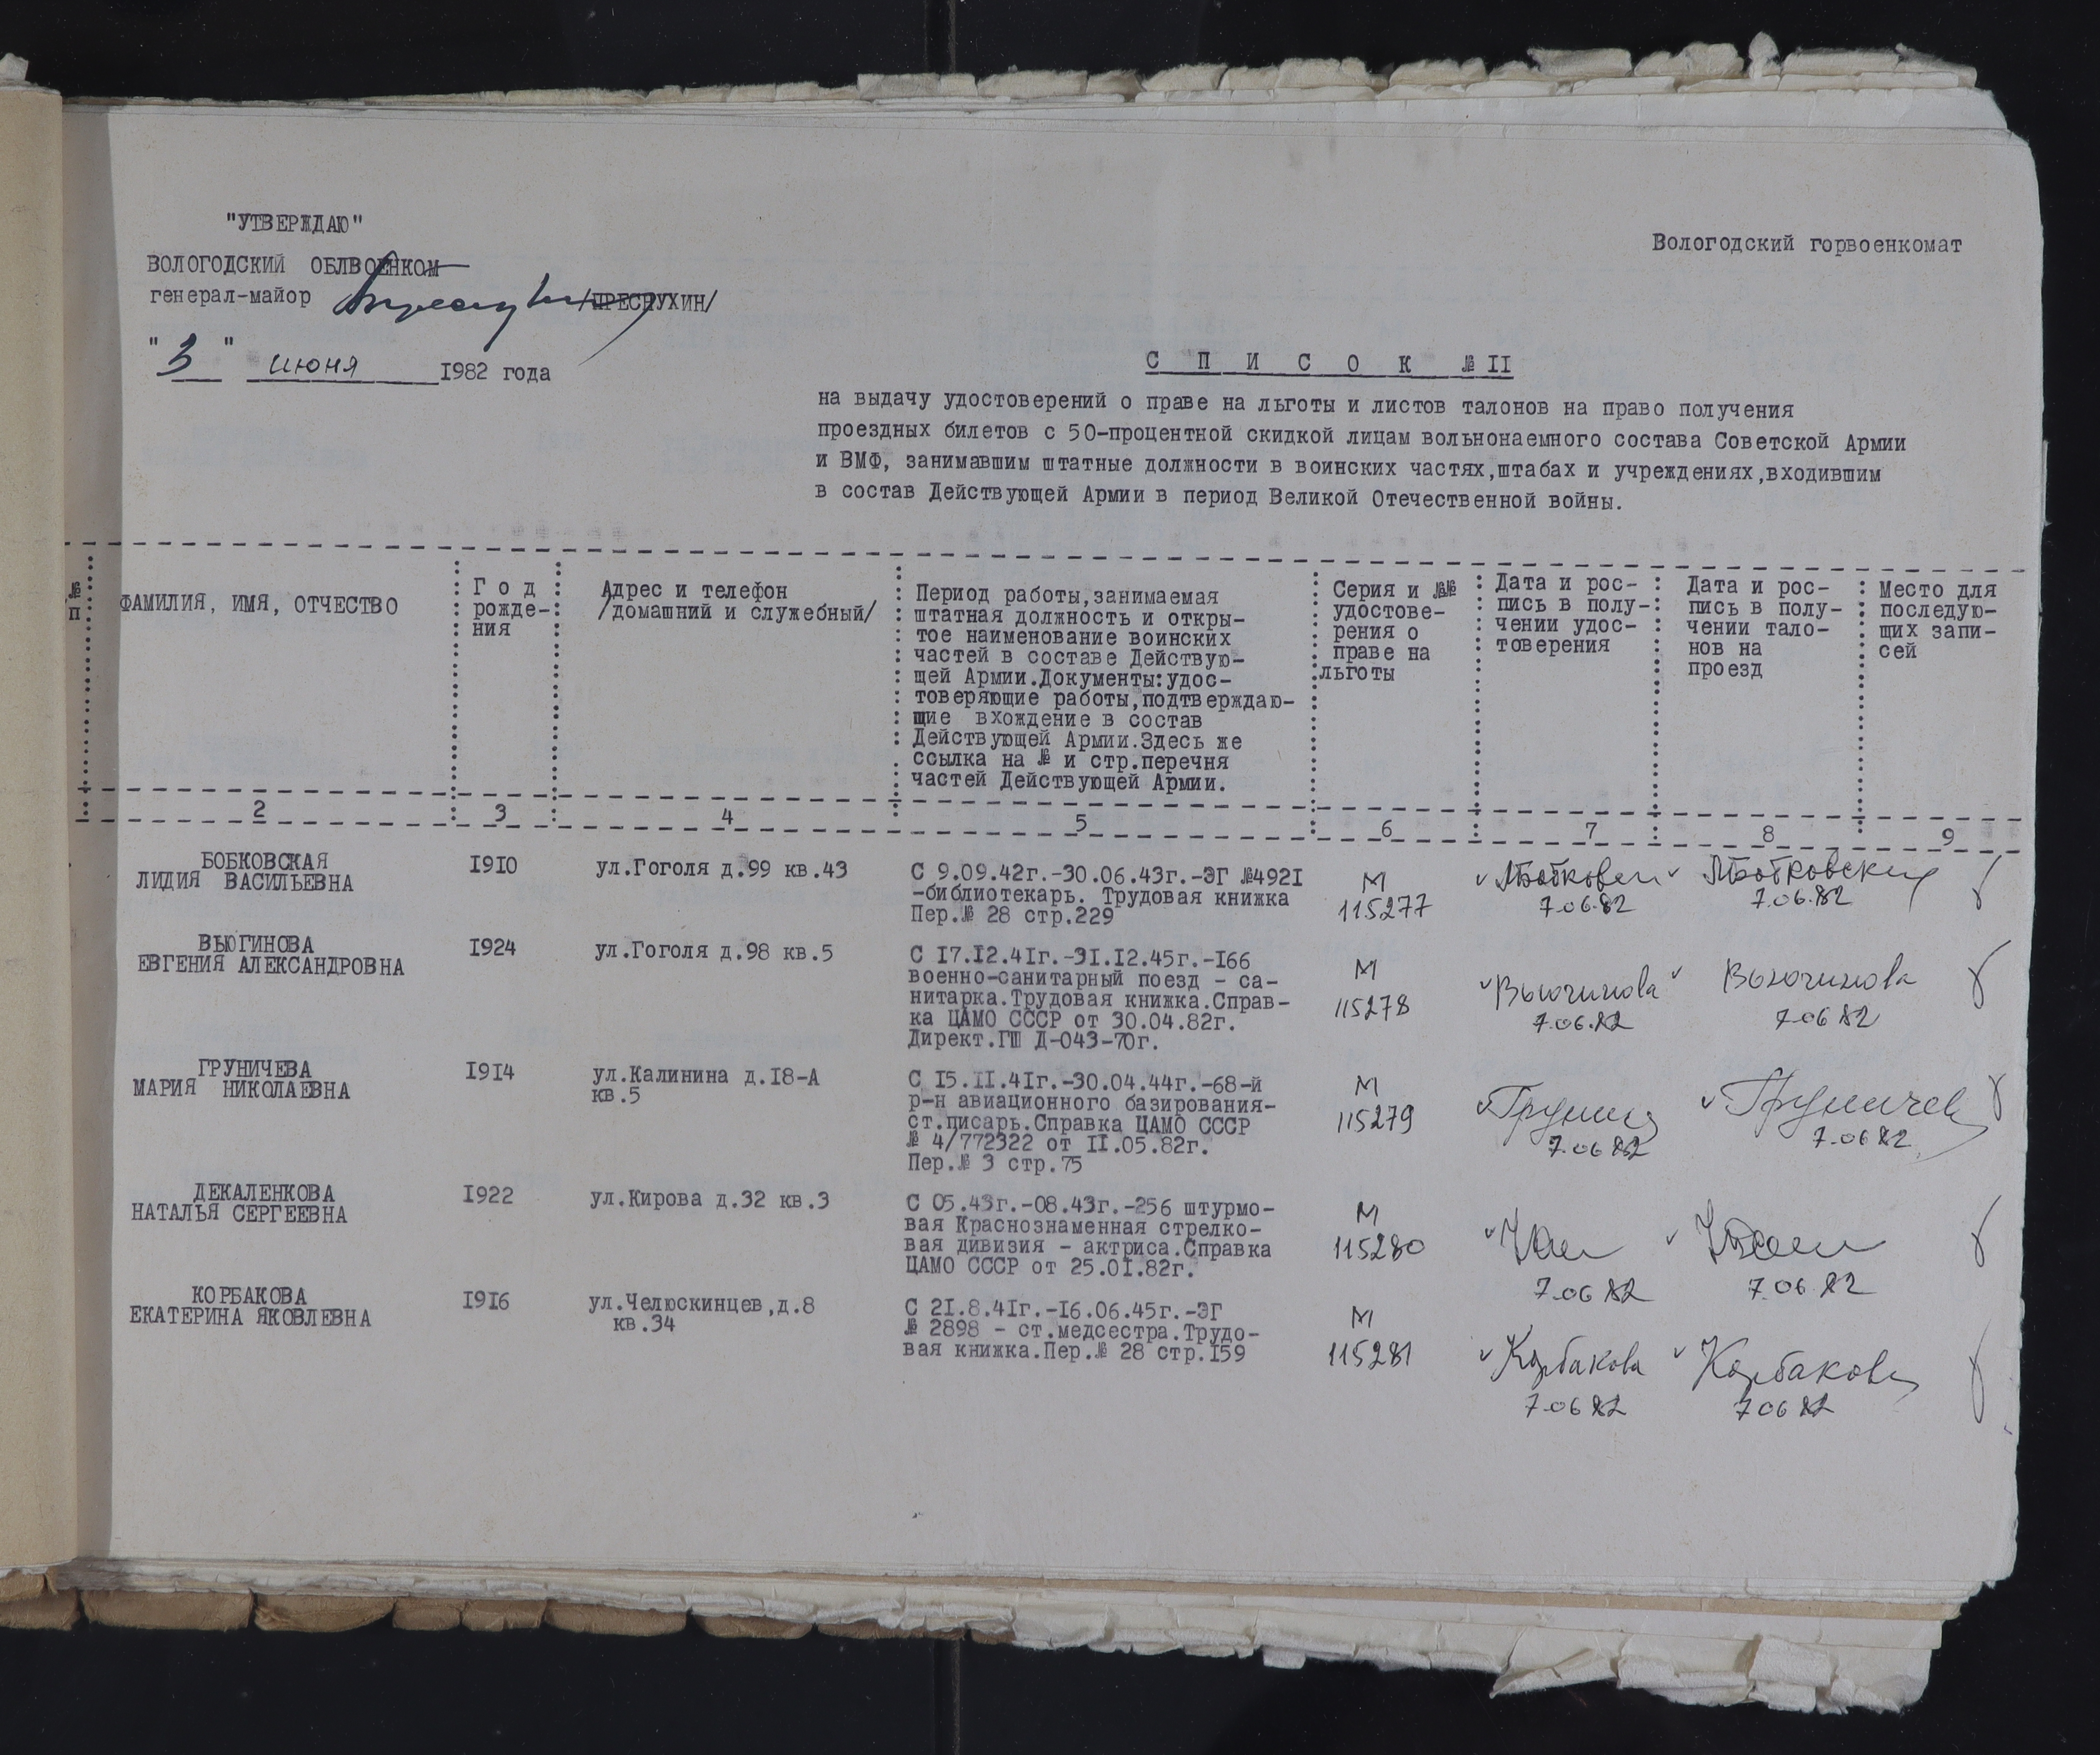 "УТВЕРЖДАЮ"
ВОЛОГОДСКИЙ ОБЛВОЕНКОМ
генерал-майор /ПРЕСНУХИН/
"3" июня 1982 года
Вологодский горвоенкомат
С П И С О К № II
на выдачу удостоверений о праве на льготы и листов талонов на право получения
проездных билетов с 50-процентной скидкой лицам вольнонаемного состава Советской Армии
и ВМФ, занимавшим штатные должности в воинских частях,штабах и учреждениях,входившим
в состав Действующей Армии в период Великой Отечественной войны.
№
п
ФАМИЛИЯ, ИМЯ, ОТЧЕСТВО
Г о д
рожде-
ния
Адрес и телефон
/домашний и служебный/
Период работы,занимаемая
штатная должность и откры-
тое наименование воинских
частей в составе Действую-
щей Армии.Документы:удос-
товеряющие работы,подтверждаю-
щие вхождение в состав
Действующей Армии.Здесь же
ссылка на № и стр.перечня
частей Действующей Армии.
Серия и №№
удостове-
рения о
праве на
льготы
Дата и рос-
пись в полу-
чении удос-
товерения
Дата и рос-
пись в полу-
чении тало-
нов на
проезд
Место для
последую-
щих запи-
сей
2 3 4 5 6 7 8 9
БОБКОВСКАЯ
ЛИДИЯ ВАСИЛЬЕВНА
I9I0
ул.Гоголя д.99 кв.43
С 9.09.42г.-30.06.43г.-ЭГ №492I
-библиотекарь. Трудовая книжка
Пер.№ 28 стр.229
М
115277
7.06.82
7.06.82
ВЬЮГИНОВА
ЕВГЕНИЯ АЛЕКСАНДРОВНА
I924
ул.Гоголя д.98 кв.5
С I7.I2.4Iг.-3I.I2.45г.-I66
военно-санитарный поезд - са-
нитарка.Трудовая книжка.Справ-
ка ЦАМО СССР от 30.04.82г.
Директ.ГШ Д-043-70г.
М
115278
Вьюгинова
7.06.82
Вьюгинова
7.06 82
ГРУНИЧЕВА
МАРИЯ НИКОЛАЕВНА
I9I4
ул.Калинина д.I8-А
кв.5
С I5.II.4Iг.-30.04.44г.-68-й
р-н авиационного базирования-
ст.писарь.Справка ЦАМО СССР
№ 4/772322 от II.05.82г.
Пер.№ 3 стр.75
М
115279
7.06 82
7.06 82
ДЕКАЛЕНКОВА
НАТАЛЬЯ СЕРГЕЕВНА
I922
ул.Кирова д.32 кв.3
С 05.43г.-08.43г.-256 штурмо-
вая Краснознаменная стрелко-
вая дивизия - актриса.Справка
ЦАМО СССР от 25.0I.82г.
М
115280
7.06 82
7.06 82
КОРБАКОВА
ЕКАТЕРИНА ЯКОВЛЕВНА
I9I6
ул.Челюскинцев,д.8
кв.34
С 2I.8.4Iг.-I6.06.45г.-ЭГ
№ 2898 - ст.медсестра.Трудо-
вая книжка.Пер.№ 28 стр.I59
М
115281
Корбакова
7.06 82
Корбакова
7 06 82